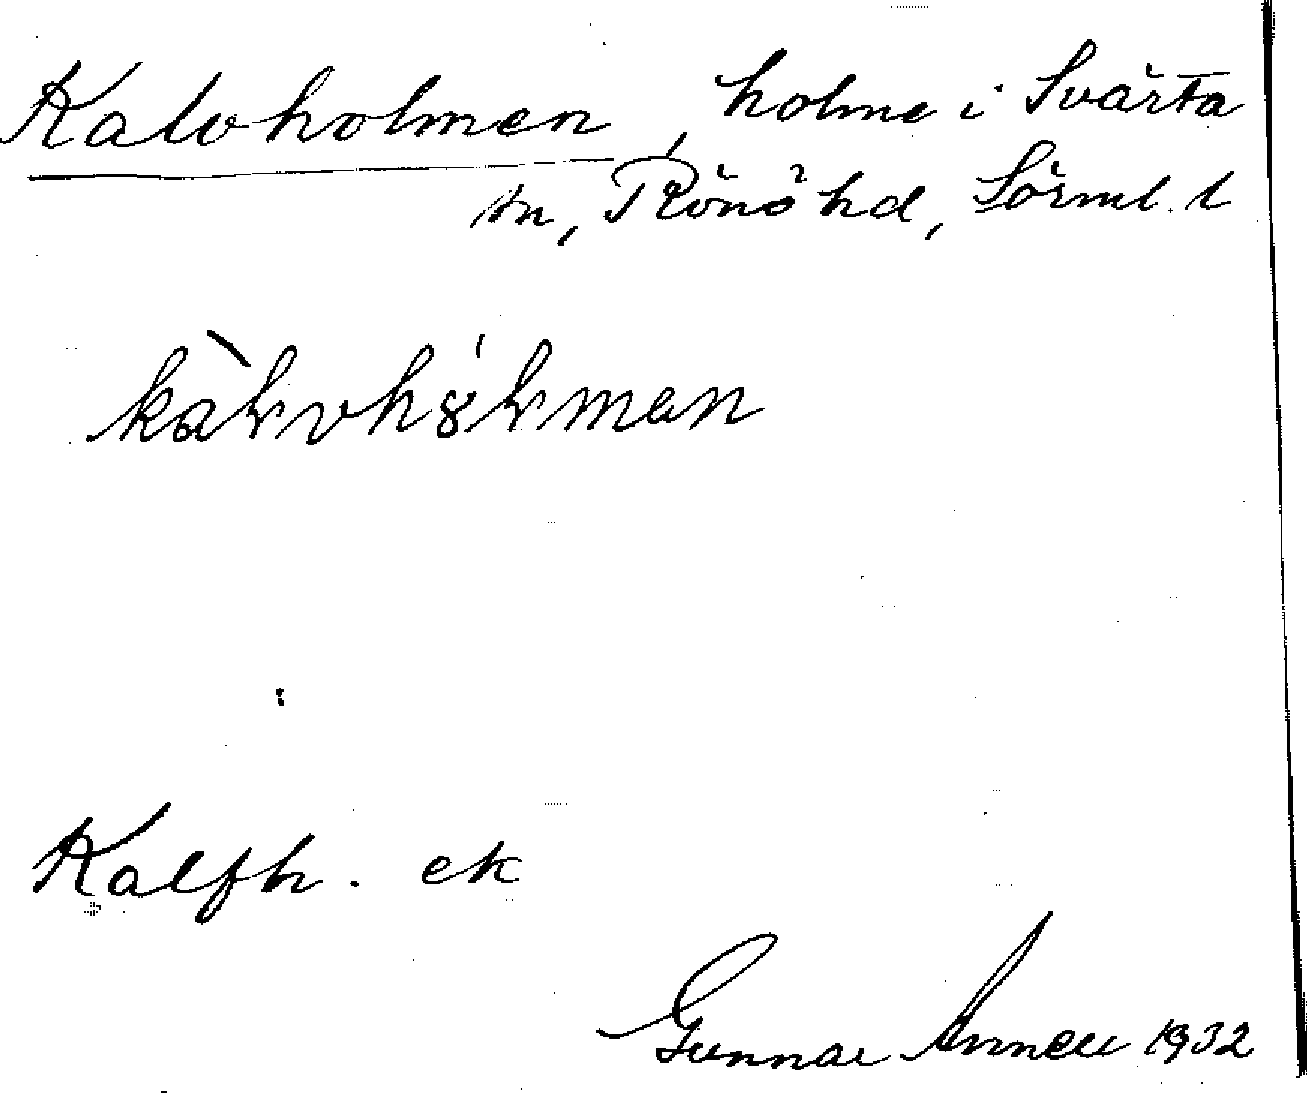 Kalvholmen, holme i Svärta
sn, Rönö hd, Sörml. l
kàlvhȣ́lmen
Kalfh. ek
Gunnar Annell 1932